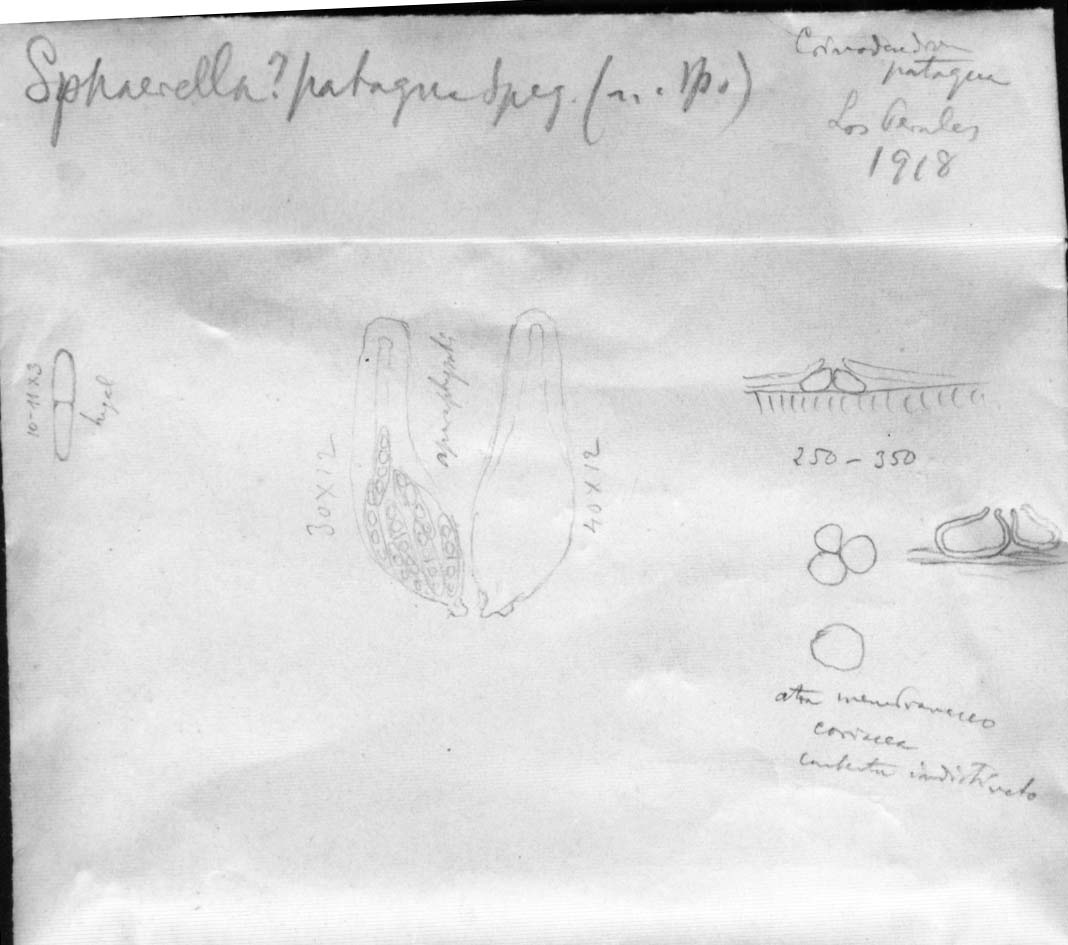 Sphaerella? patagua Speg. (n. sp.)
Crinodendron
patagua
Los Perales
1918
10-11 x 3
hyal
30 x 12
aparaphysati
40 x 12
250 - 350
atra membranaceo
coriacea
contextu indistincto